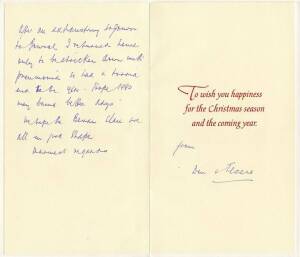 After an exhausting sojourn
to I returned home
only to be stricken down with
pneumonia so had a
end to the year. Hope 1990
may bring better days!
we are
all in good shape
Warmest regards
To wish you happiness
for the Christmas season
and the coming year.
from
Don